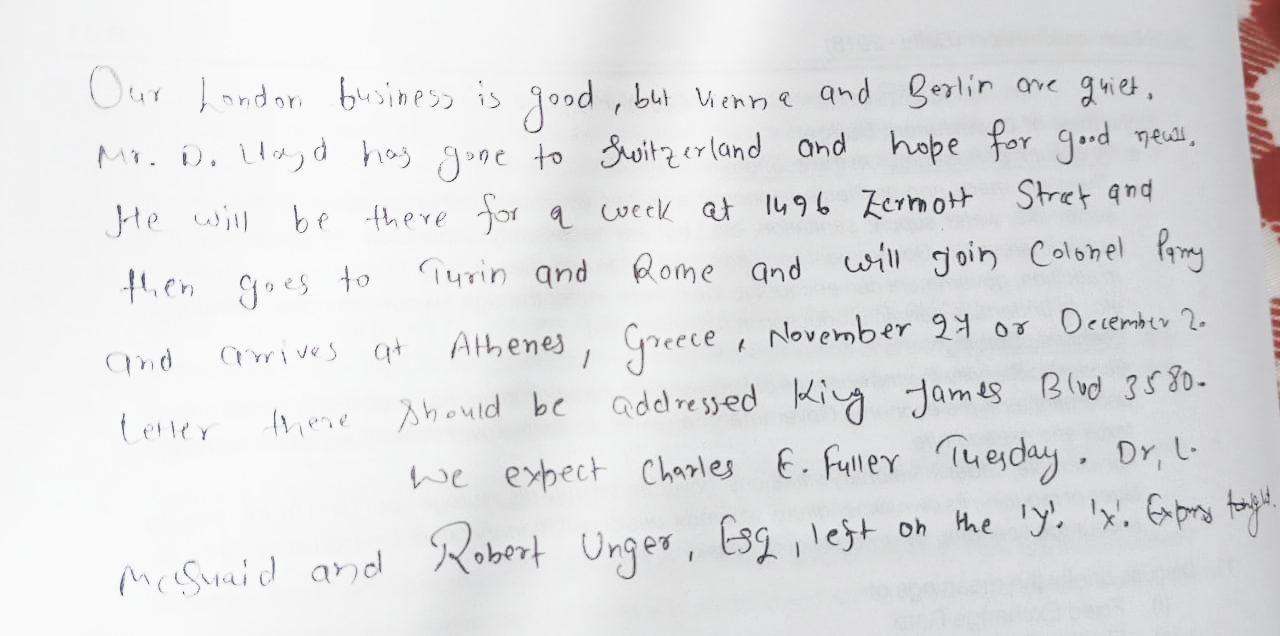 Our London business is good, but Vienna and Berlin are quiet.
Mr. D. Lloyd has gone to Switzerland and hope for good news.
He will be there for a week at 1496 Zermott Street and
then goes to Turin and Rome and will join Colonel Parry
and arrives at Athenes, Greece, November 27 or December 2.
Letter there should be addressed King James Blvd 3580.
We expect Charles E. Fuller Tuesday. Dr, L.
McQuaid and Robert Unger, Esq, left on the 'Y'. 'X'. Express tonight.